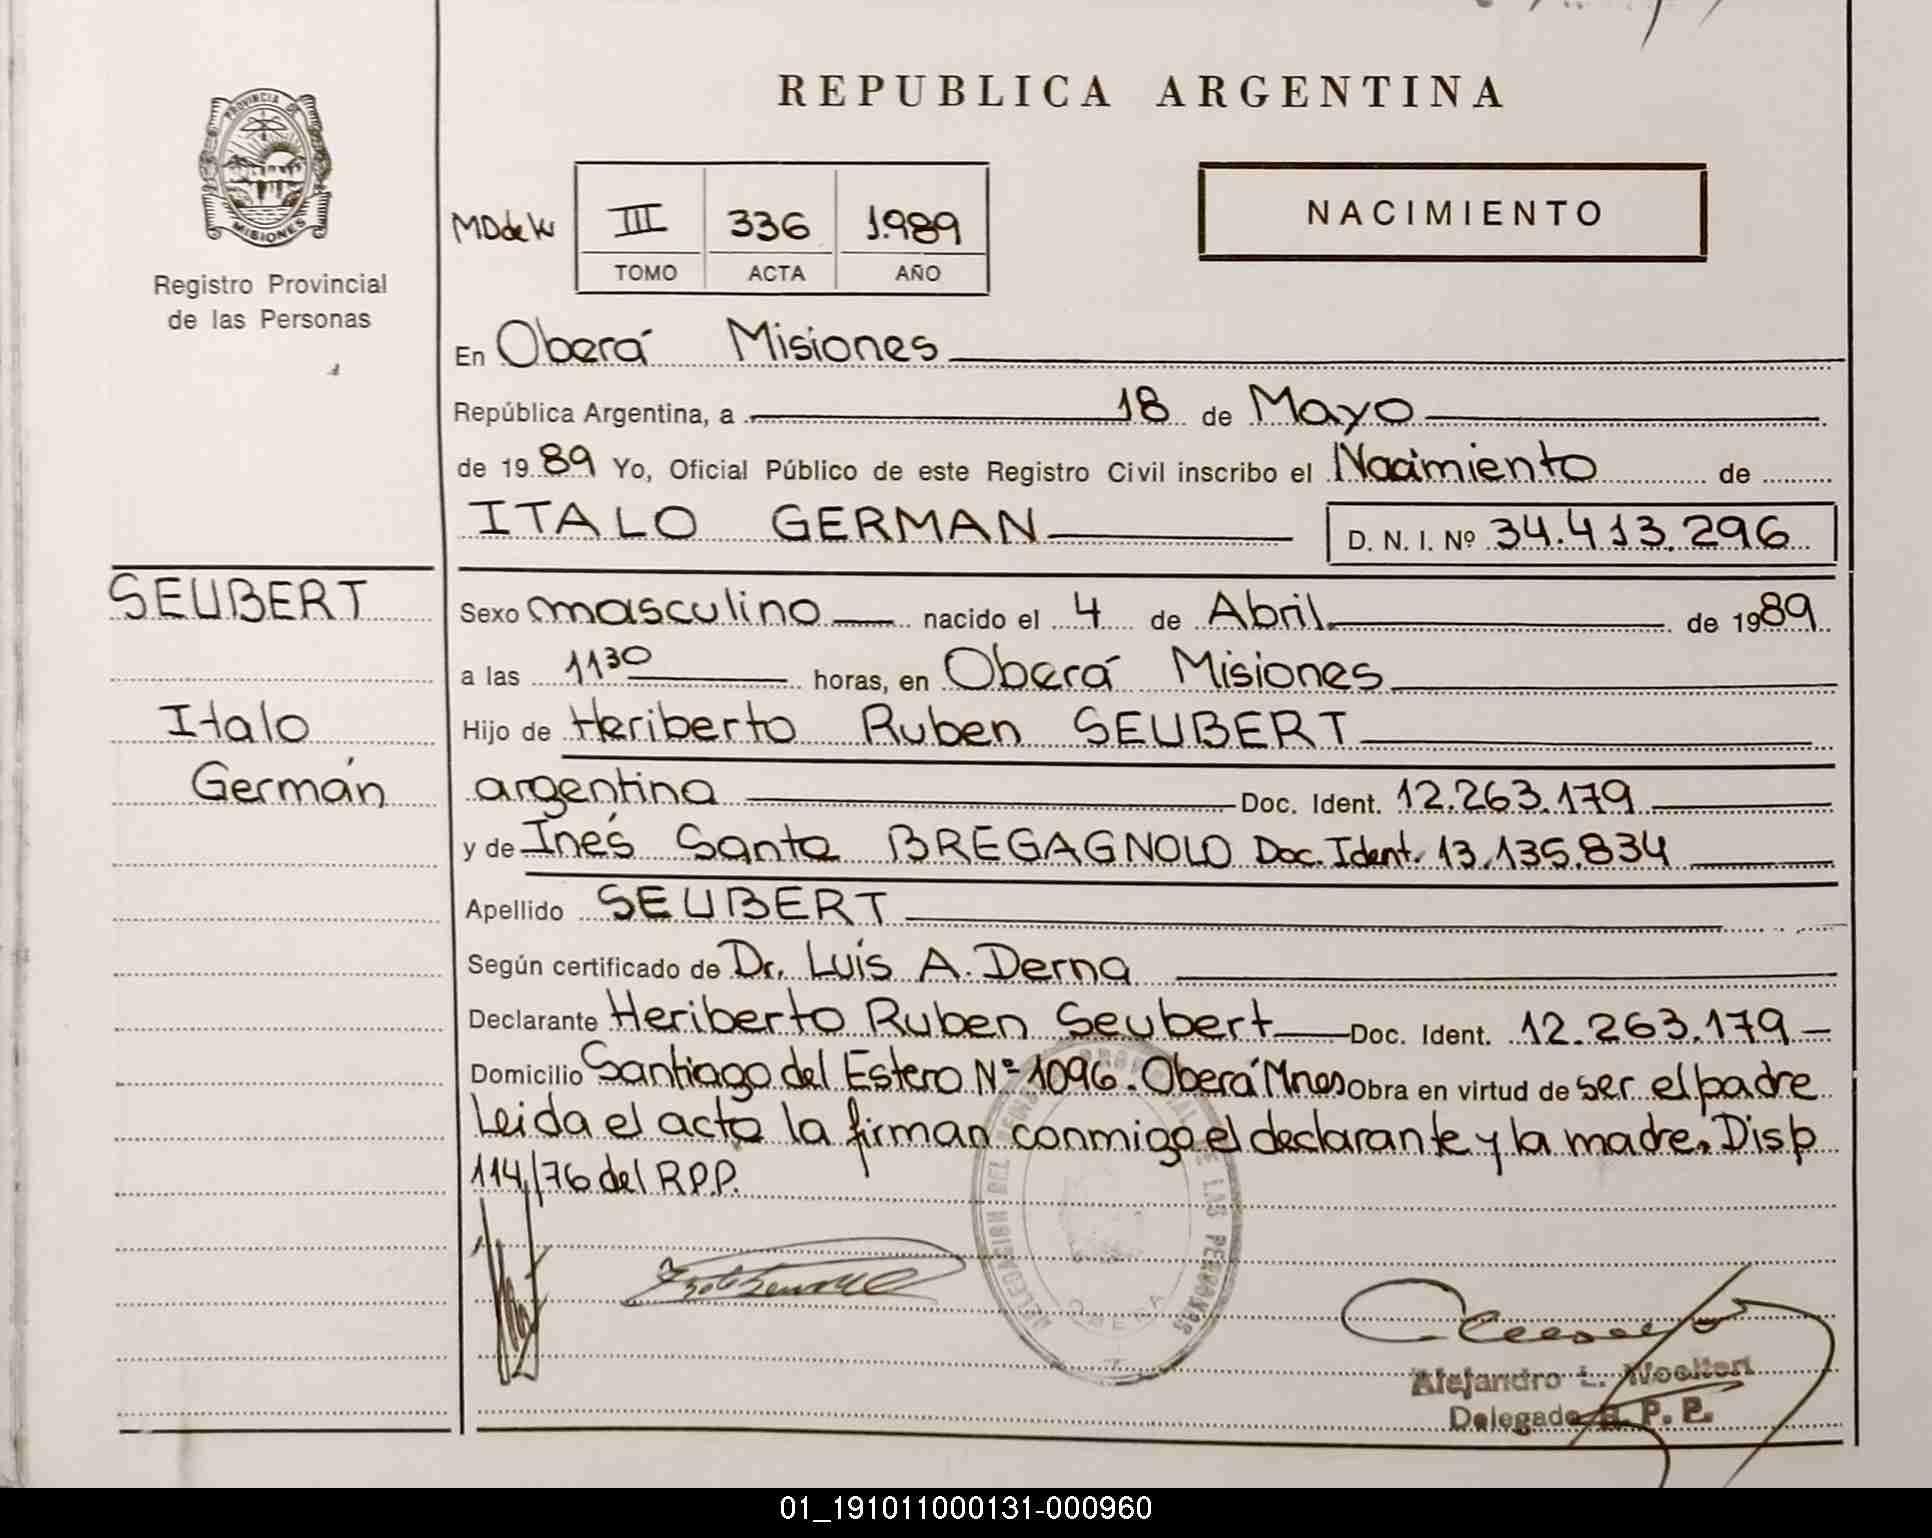 REPUBLICA ARGENTINA
PROVINCIA DE
MISIONES
Registro Provincial
de las Personas
NACIMIENTO
MD de K
III 336 1.989
TOMO ACTA AÑO
En Oberá Misiones
República Argentina, a 18 de Mayo
de 19 89 Yo, Oficial Público de este Registro Civil inscribo el Nacimiento de
ITALO GERMAN D. N. I. Nº 34.413.296
SEUBERT
Italo
Germán
Sexo masculino nacido el 4 de Abril de 1989
a las 11 30 horas, en Oberá Misiones
Hijo de Heriberto Ruben SEUBERT
argentina Doc. Ident. 12.263.179
y de Inés Santa BREGAGNOLO Doc. Ident. 13.135.834
Apellido SEUBERT
Según certificado de Dr. Luis A. Derna
Declarante Heriberto Ruben Seubert Doc. Ident. 12.263.179
Domicilio Santiago del Estero Nº 1096. Oberá Mnes Obra en virtud de ser el padre
Leida el acta la firman conmigo el declarante y la madre. Disp
114/76 del R.P.P.
DE LAS PERSONAS
OBERA
Alejandro L.
Delegado R. P. P.
01_191011000131-000960